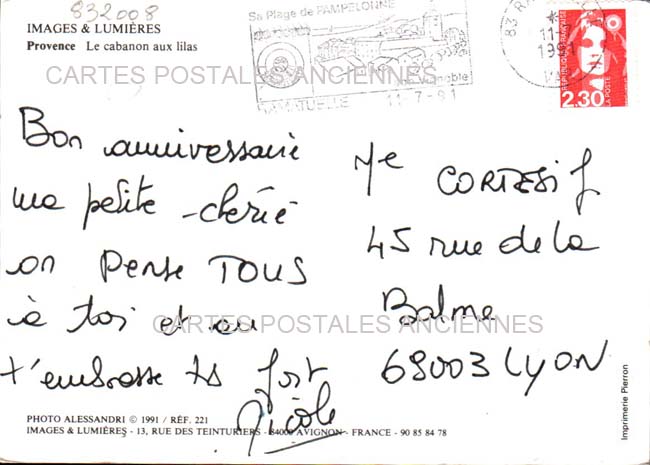 832008
IMAGES & LUMIÈRES
Provence Le cabanon aux lilas
Sa Plage de PAMPELONNE
RAMATUELLE 11-7-91
2,30
RÉPUBLIQUE FRANÇAISE
LA POSTE
CARTES POSTALES ANCIENNES
Bon anniversaire
ma petite chérie
on pense TOUS
à toi et on
t'embrasse ts fort
Nicole
Me CORTESI J
45 rue de la
Balme
69003 LYON
CARTES POSTALES ANCIENNES
PHOTO ALESSANDRI © 1991 / RÉF. 221
IMAGES & LUMIÈRES - 13, RUE DES TEINTURIERS - 84000 AVIGNON - FRANCE - 90 85 84 78
Imprimerie Pierron